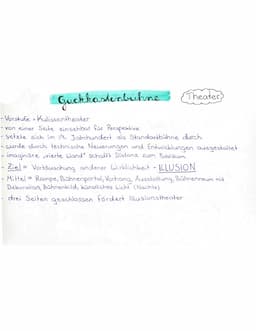 Guckkastenbühne
Theater
- Vorstufe = Kulissentheater
- von einer Seite einsehbar für Perspektive
- setzte sich im 19. Jahrhundert als Standardbühne durch
- wurde durch technische Neuerungen und Entwicklungen ausgestaltet
- imaginäre "vierte Wand" schafft Distanz zum Publikum
- Ziel = Vortäuschung anderer Wirklichkeit - ILLUSION
- Mittel = Rampe, Bühnenportal, Vorhang, Ausstattung, Bühnenraum mit
Dekoration, Bühnenbild, künstliches Licht
- drei Seiten geschlossen fördert Illusionstheater